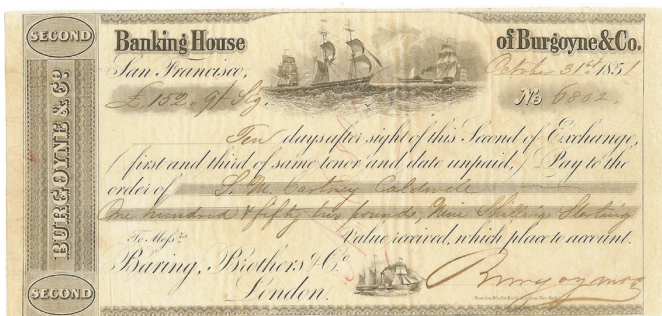 SECOND
BURGOYNE & Co.
SECOND
Banking House of Burgoyne & Co.
San Francisco, October 31st 1851
£152. 9/ Stg. No 6802.
Ten days after sight of this Second of Exchange,
(first and third of same tenor and date unpaid,) Pay to the
order of Cartney Caldwell
One hundred & fifty two pounds, Nine Shillings Sterling
Value received, which place to account.
To Messrs.
Baring, Brothers & Co. Burgoyne & Co
London.